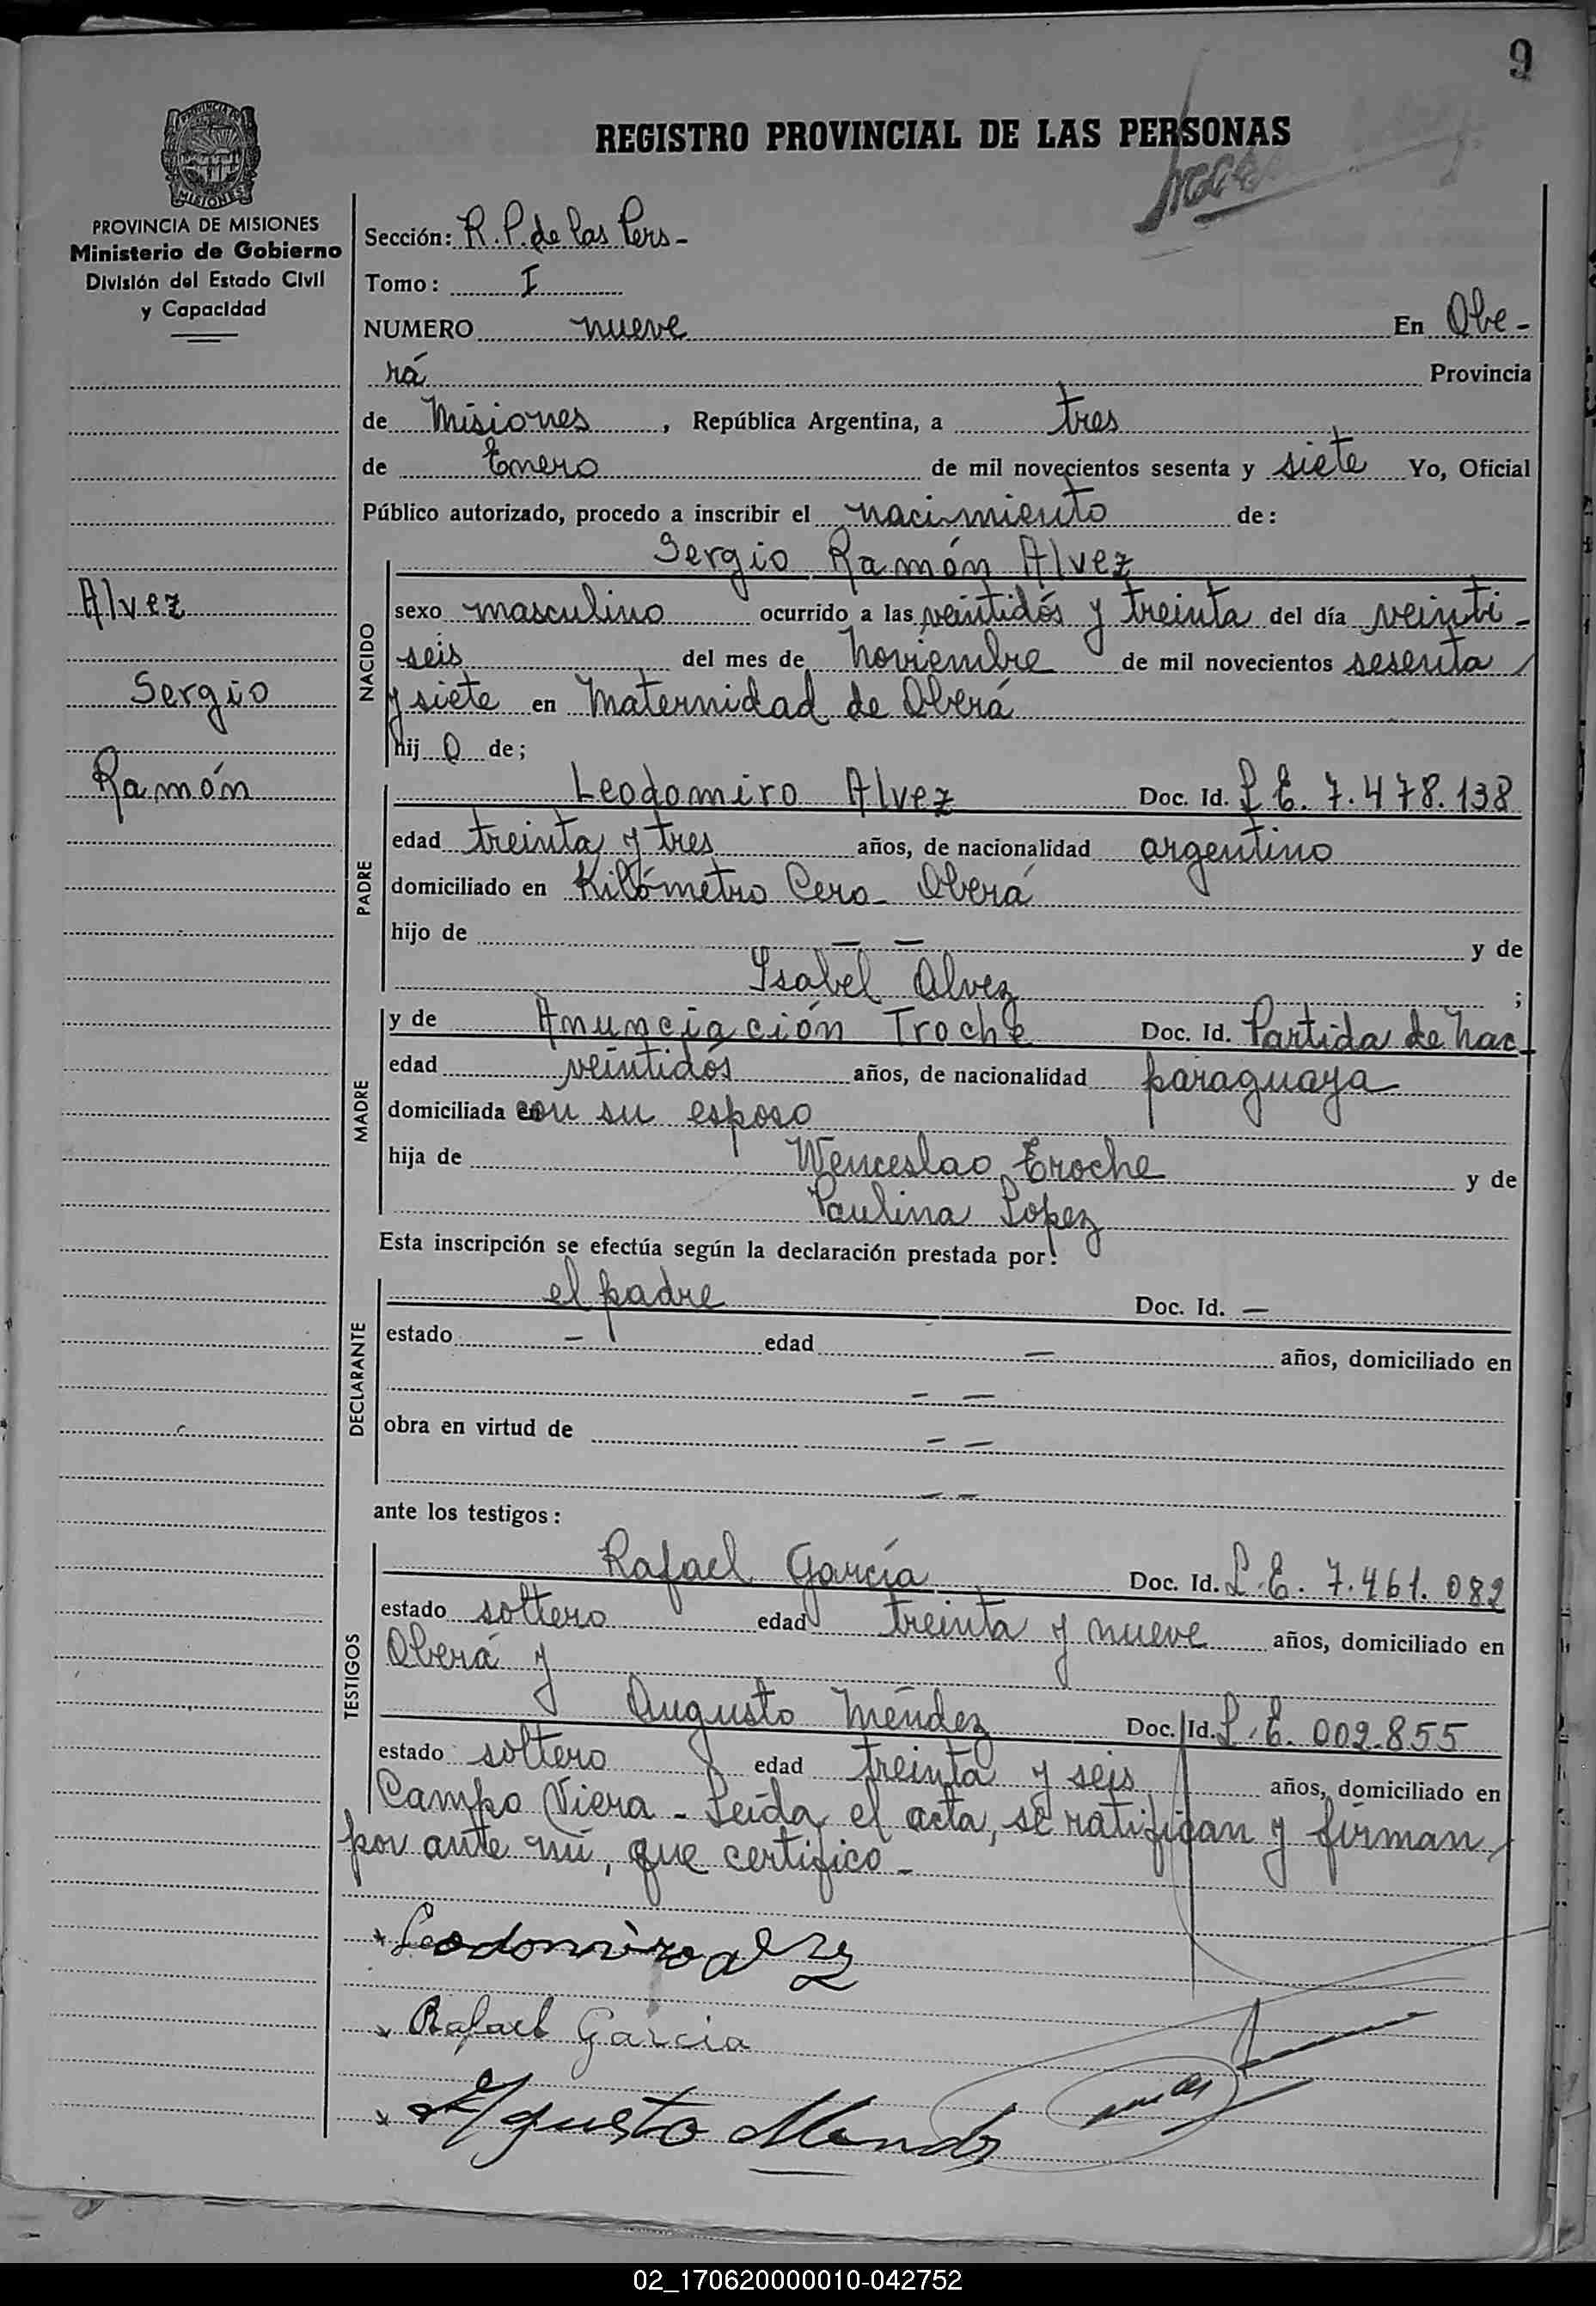 9
REGISTRO PROVINCIAL DE LAS PERSONAS
PROVINCIA DE MISIONES
MISIONES
PROVINCIA DE MISIONES
Ministerio de Gobierno
División del Estado Civil
y Capacidad
Sección: R. P. de las Pers-
Tomo: I
NUMERO nueve En Obe-
rá Provincia
de Misiones, República Argentina, a tres
de Enero de mil novecientos sesenta y siete Yo, Oficial
Público autorizado, procedo a inscribir el nacimiento de:
Alvez
Sergio
Ramón
NACIDO
Sergio Ramón Alvez
sexo masculino ocurrido a las veintidós y treinta del día veinti-
seis del mes de Noviembre de mil novecientos sesenta
y siete en Maternidad de Oberá
hij o de;
PADRE
Leodomiro Alvez Doc. Id. L E. 7.478.138
edad treinta y tres años, de nacionalidad argentino
domiciliado en Kilómetro Cero- Oberá
hijo de — — y de
Isabel Alvez ;
MADRE
y de Anunciación Troche Doc. Id. Partida de Nac-
edad veintidós años, de nacionalidad paraguaya
domiciliada en con su esposo
hija de Wenceslao Troche y de
Paulina Lopez
Esta inscripción se efectúa según la declaración prestada por:
DECLARANTE
el padre Doc. Id. —
estado — edad — años, domiciliado en
— —
obra en virtud de — —
— —
ante los testigos:
TESTIGOS
Rafael García Doc. Id. L. E. 7.461.082
estado soltero edad treinta y nueve años, domiciliado en
Oberá y
Augusto Méndez Doc. Id. L. E. 002.855
estado soltero edad treinta y seis años, domiciliado en
Campo Viera - Leída el acta, se ratifican y firman
por ante mí, que certifico-
Leodomiro
Rafael Garcia
Agusto Mendes
02_170620000010-042752